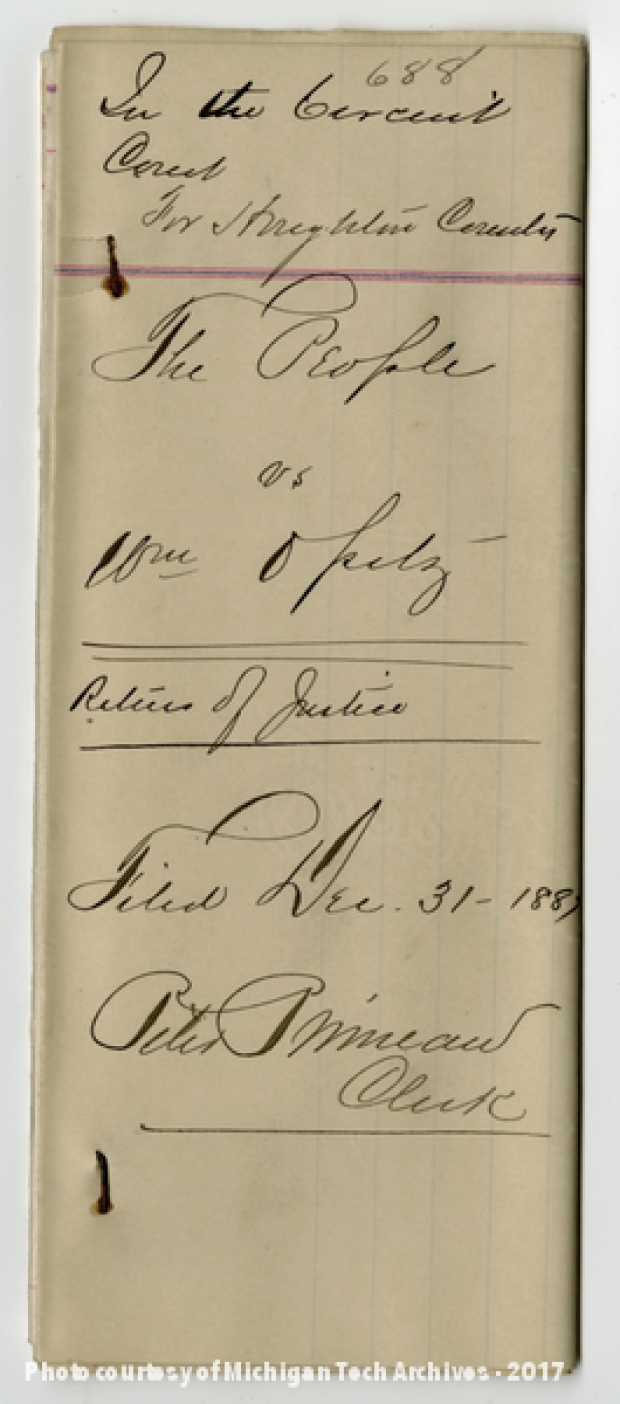 688
In the Circuit
Court
For Houghton County
The People
vs
Wm Opitz
Return of Justice
Filed Dec. 31 - 1887
Peter Primeau
Clerk
Photo courtesy of Michigan Tech Archives - 2017